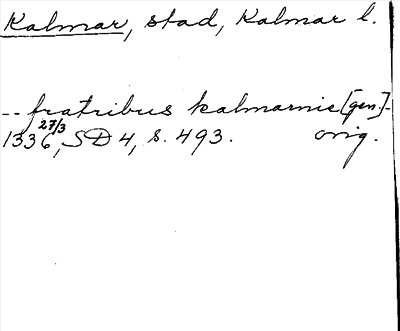 Kalmar, stad, Kalmar l.
-- fratribus kalmarnie [gen.] -
27/3
1336, SD 4, s. 493. orig.